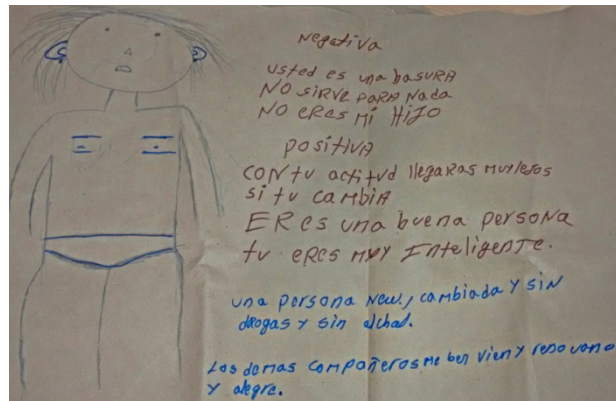 Negativa
usted es una basura
NO sirve PARA Nada
NO eres mi Hijo
positiva
CON tu actitud llegaras muy lejos
si tu cambia
ERes una buena persona
tu eres muy Inteligente.
una persona New, cambiada y sin
drogas y sin alchol.
Los demas compañeros me ben vien y renovano
y alegre.